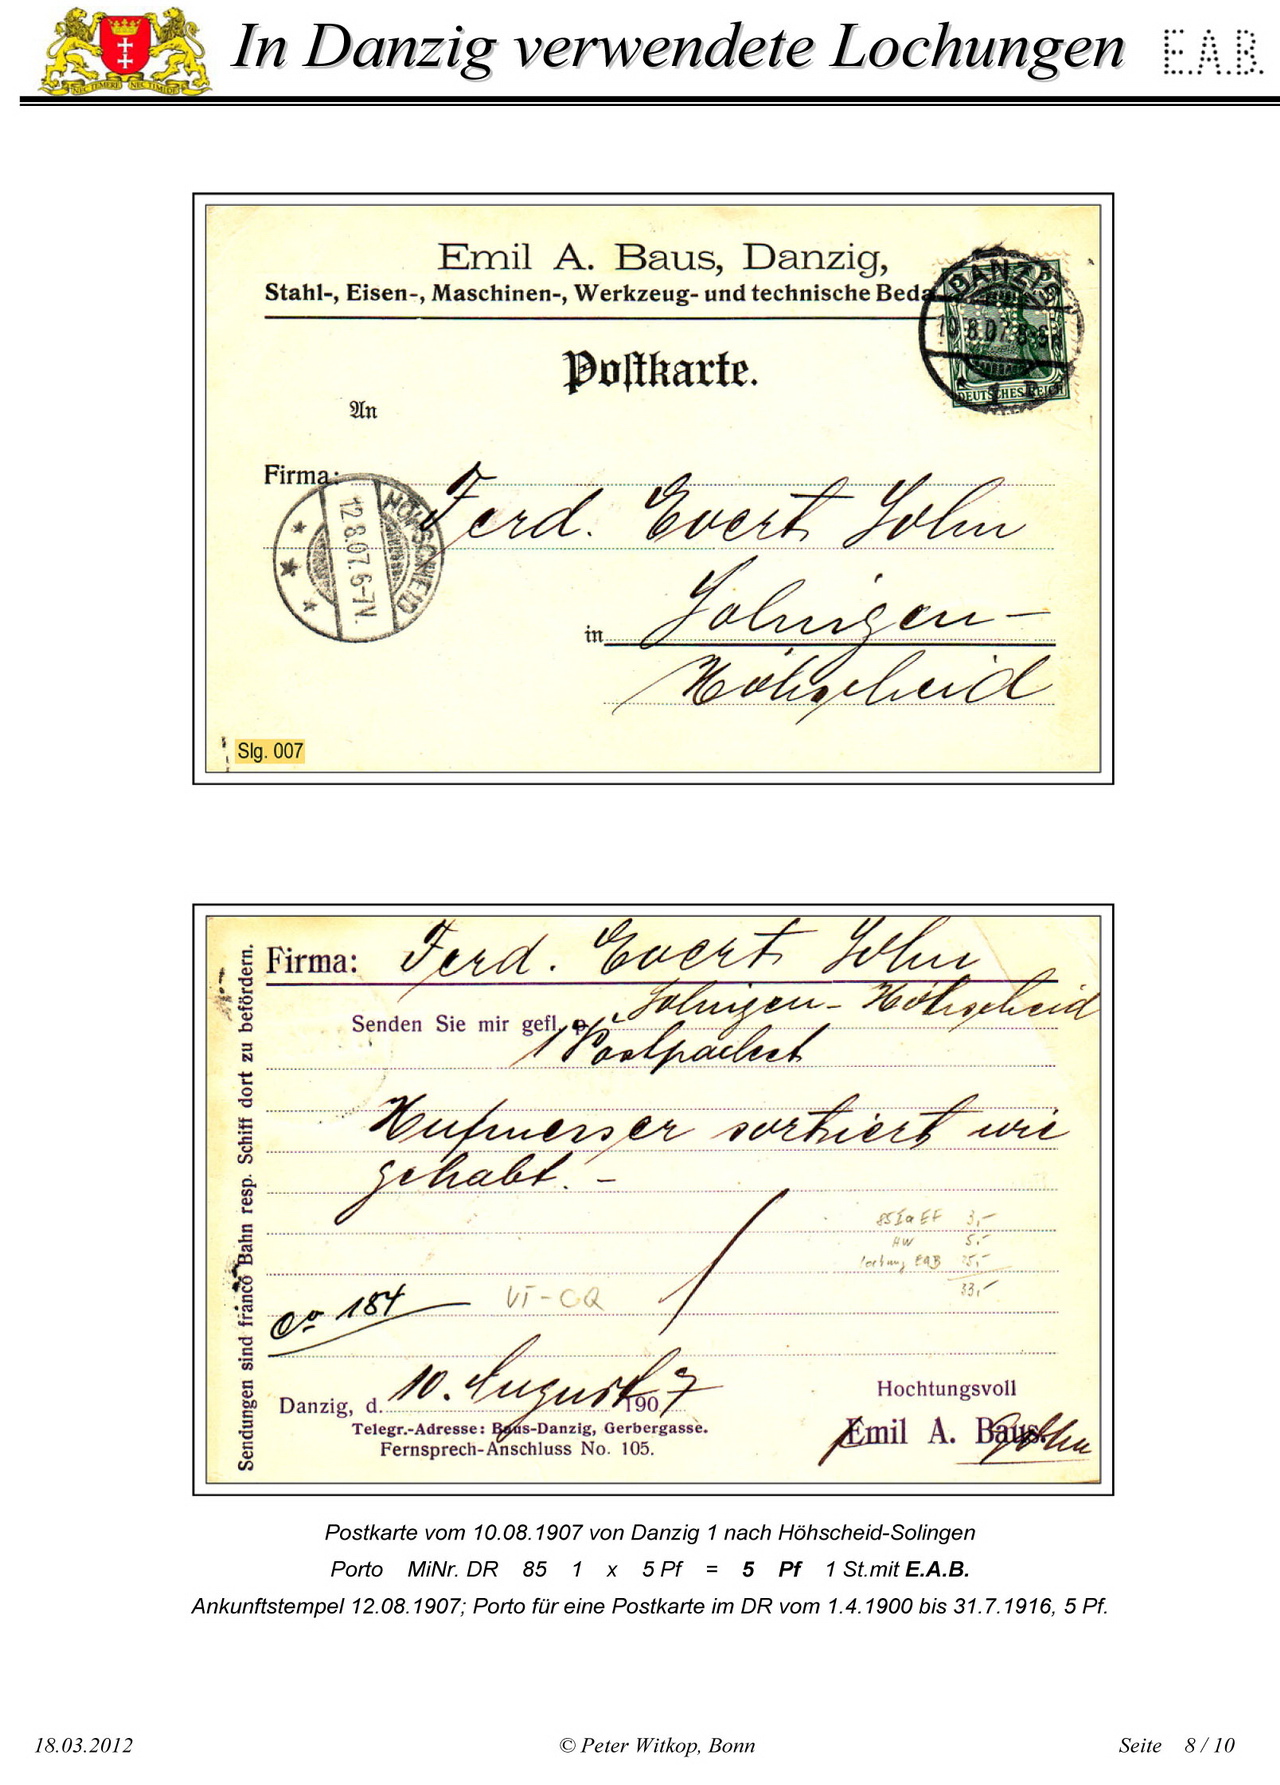 In Danzig verwendete Lochungen E.A.B.
NEC TEMERE NEC TIMIDE
Emil A. Baus, Danzig,
Stahl-, Eisen-, Maschinen-, Werkzeug- und technische Beda
DANZIG
10.8.07.
1
DEUTSCHES REICH
Postkarte.
An
Firma:
Ferd. Evert Sohn
HÖHSCHEID
12.8.07. 6-7N.
in Solingen-
Höhscheid
Slg. 007
Sendungen sind franco Bahn resp. Schiff dort zu befördern.
Firma: Ferd. Evert Sohn
Solingen-Höhscheid
Senden Sie mir gefl. p.
1 Postpacket
Hufmesser sortiert wie
gehabt. –
85 Ia EF 3,–
HW 5,–
Lochung EAB 25,–
33,–
184
VI-OQ
Danzig, d. 10. August 1907
Hochtungsvoll
Telegr.-Adresse: Baus-Danzig, Gerbergasse.
Emil A. Baus.
Fernsprech-Anschluss No. 105.
Postkarte vom 10.08.1907 von Danzig 1 nach Höhscheid-Solingen
Porto MiNr. DR 85 1 x 5 Pf = 5 Pf 1 St.mit E.A.B.
Ankunftstempel 12.08.1907; Porto für eine Postkarte im DR vom 1.4.1900 bis 31.7.1916, 5 Pf.
18.03.2012 © Peter Witkop, Bonn Seite 8 / 10